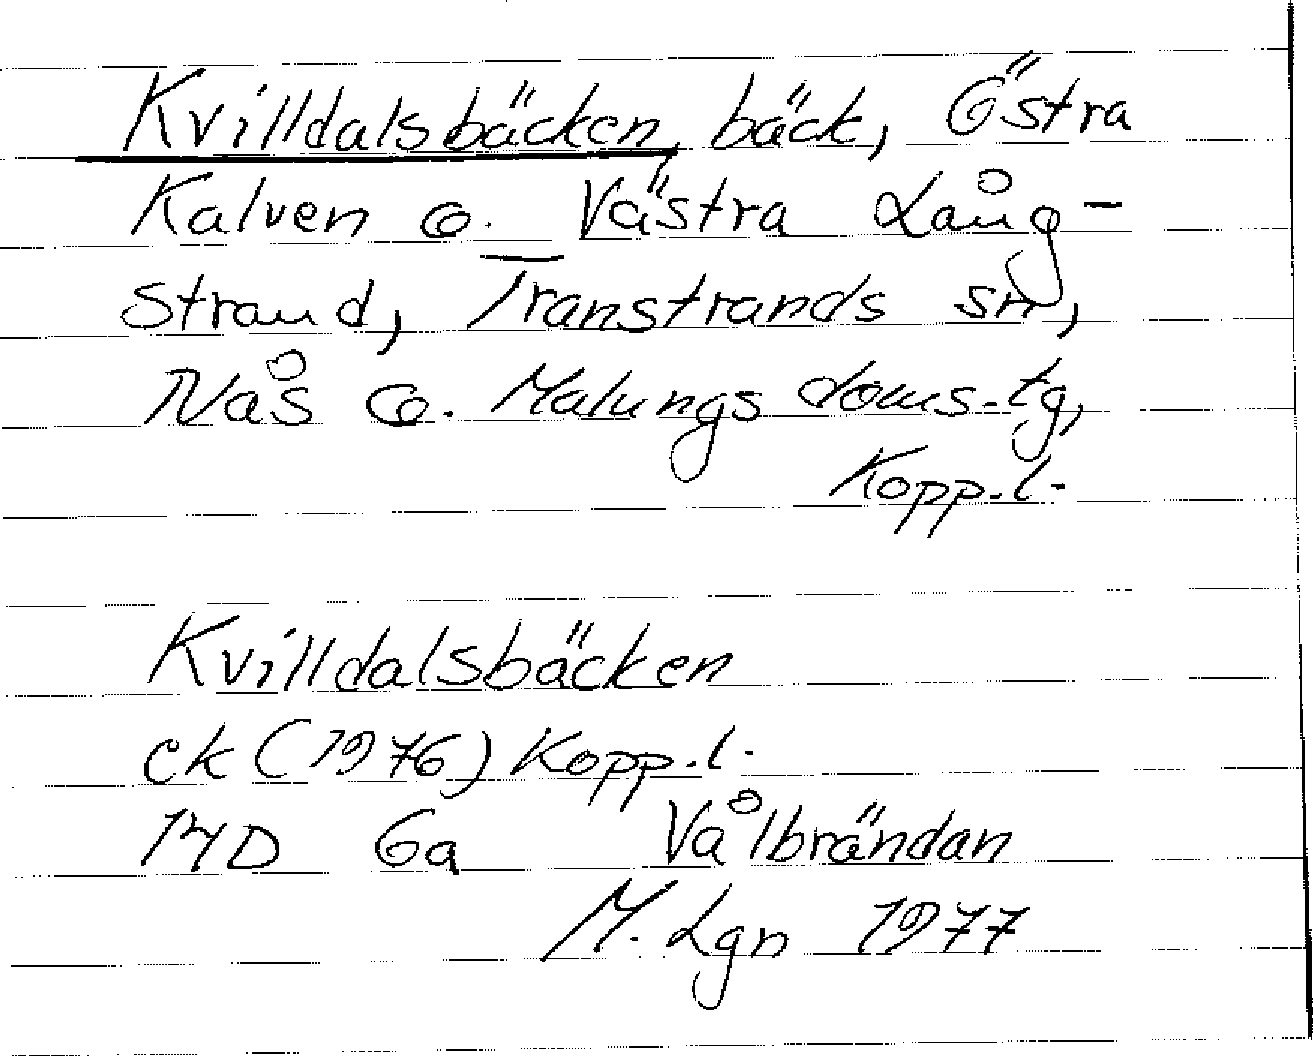 Kvilldalsbäcken, bäck, Östra
Kalven o. Västra Lång-
strand, Transtrands sn,
Nås o. Malungs doms.tg,
Kopp.l.
Kvilldalsbäcken
ek (1976) Kopp.l.
14D 6a Vålbrändan
M. Lgn 1977